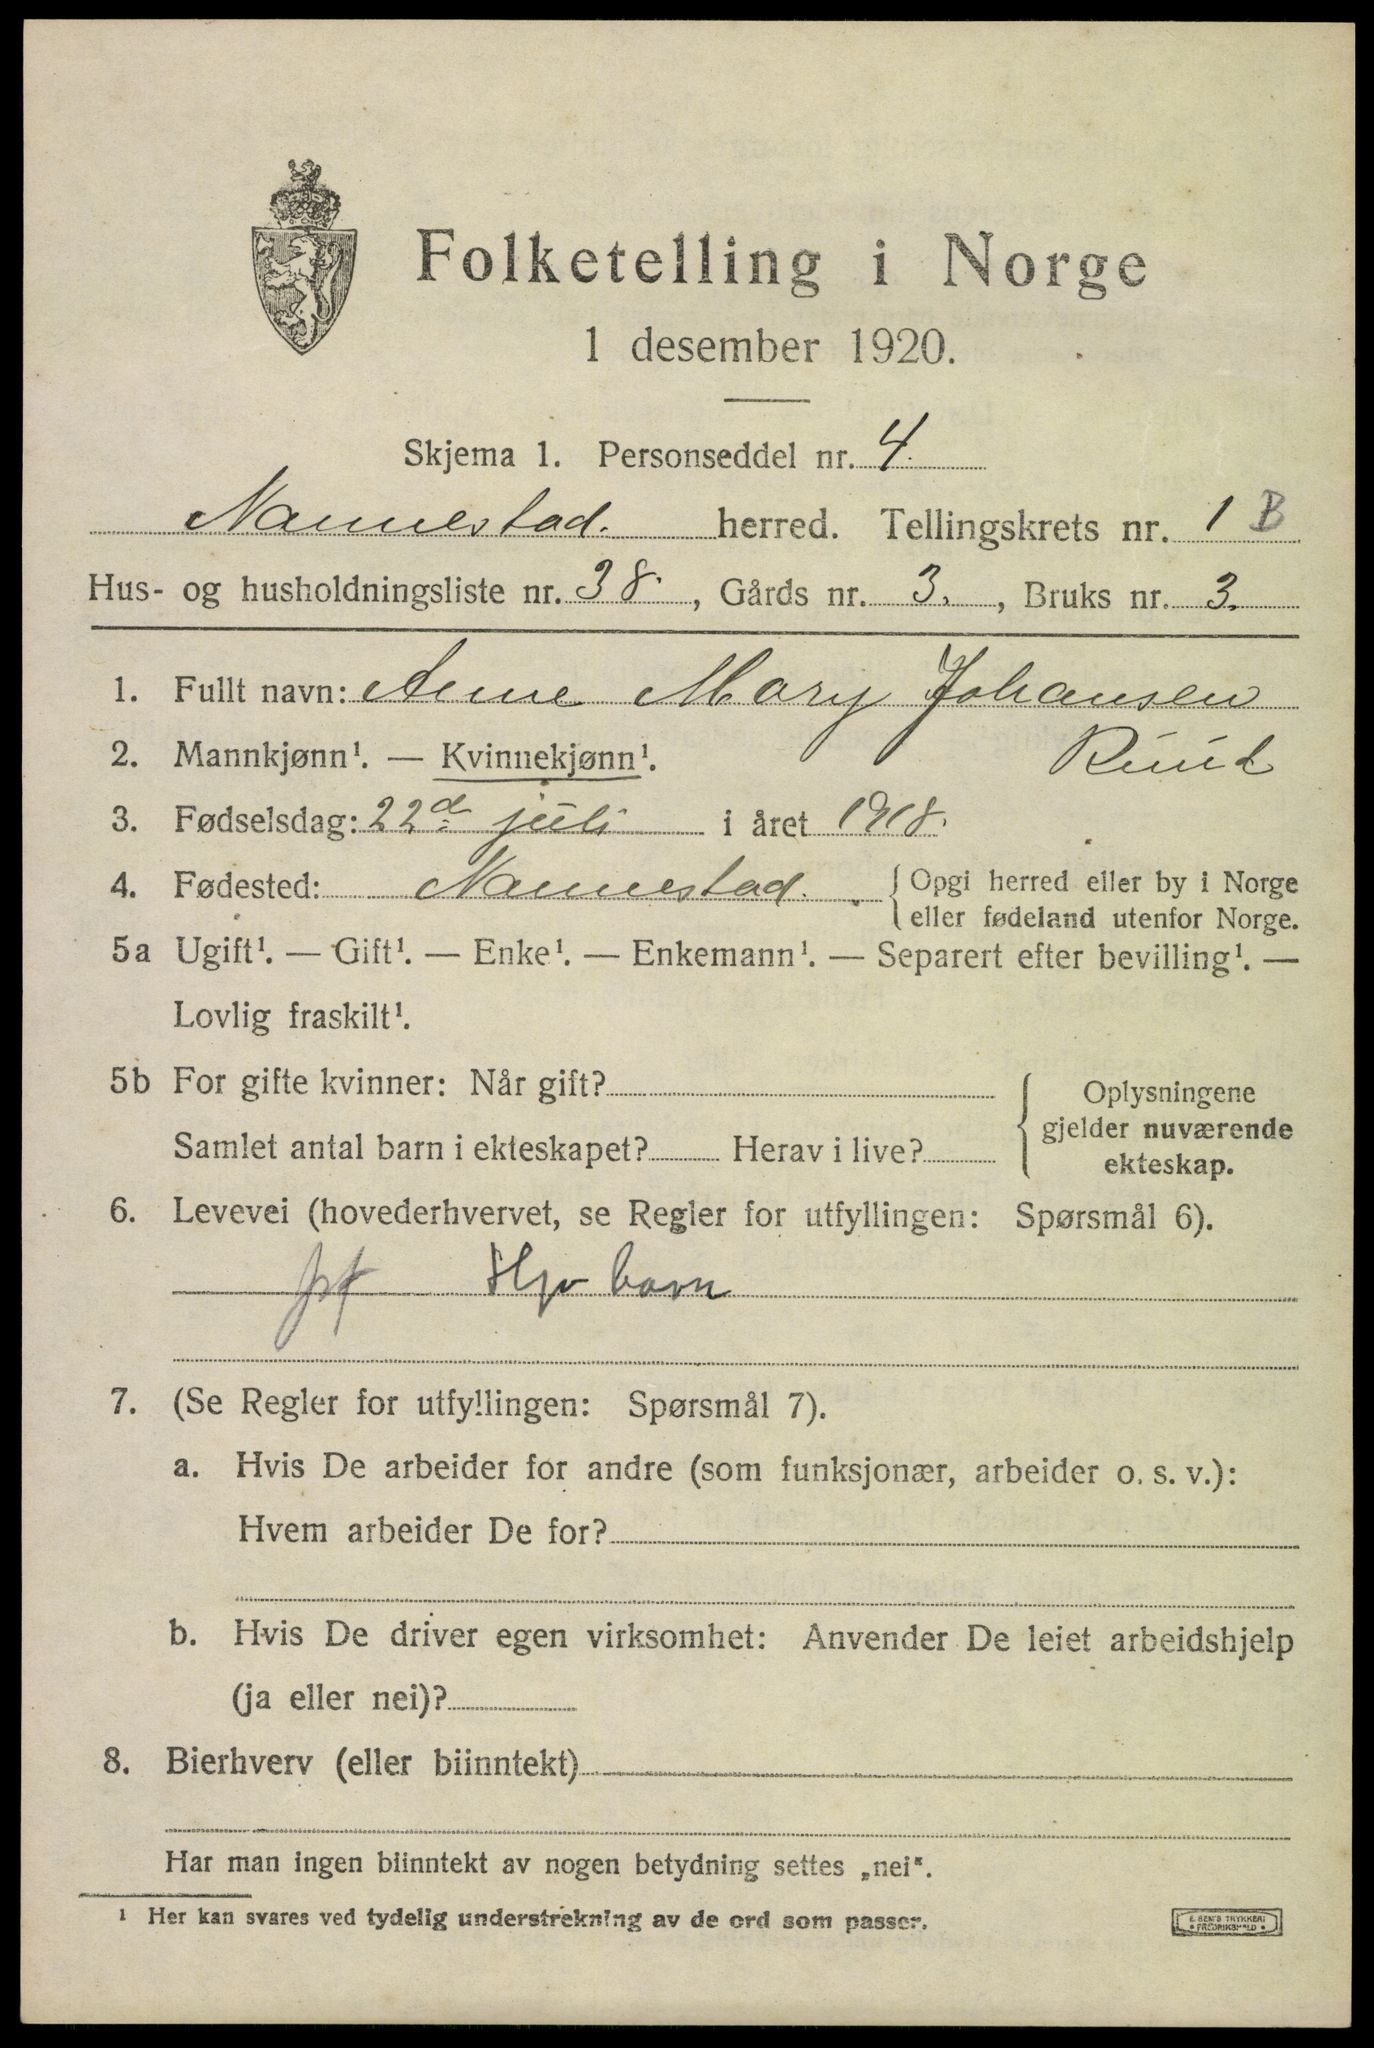 Folketelling i Norge
1 desember 1920.
Skjema 1. Personseddel nr. 4.
Nannestad. herred. Tellingskrets nr. 1 B
Hus- og husholdningsliste nr. 38. , Gårds nr. 3. , Bruks nr. 3.
1. Fullt navn: Anne Mary Johansen
Ruud
2. Mannkjønn¹. — Kvinnekjønn¹.
3. Fødselsdag: 22d juli i året 1918.
4. Fødested: Nannestad. { Opgi herred eller by i Norge
eller fødeland utenfor Norge.
5a Ugift¹. — Gift¹. — Enke¹. — Enkemann¹. — Separert efter bevilling¹. —
Lovlig fraskilt¹.
5b For gifte kvinner: Når gift?
Samlet antal barn i ekteskapet? Herav i live?
Oplysningene
gjelder nuværende
ekteskap.
6. Levevei (hovederhvervet, se Regler for utfyllingen: Spørsmål 6).
barn
7. (Se Regler for utfyllingen: Spørsmål 7).
a. Hvis De arbeider for andre (som funksjonær, arbeider o. s. v.):
Hvem arbeider De for?
b. Hvis De driver egen virksomhet: Anvender De leiet arbeidshjelp
(ja eller nei)?
8. Bierhverv (eller biinntekt)
Har man ingen biinntekt av nogen betydning settes „nei".
¹ Her kan svares ved tydelig understrekning av de ord som passer.
E. SEM'S TRYKKERI
• FREDRIKSHALD •